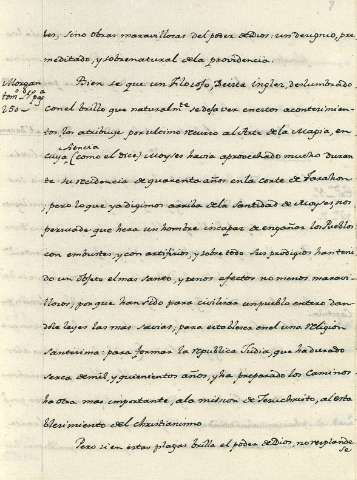 tes, sino obras maravillosas del poder de Dios: un designio, pre
meditado, y sobrenatural de la providencia.
Morgan
tom
250
Bien se que un Filosofo, Deista ingles, deslumbrado
con el brillo que naturalmte se deja ver en estos acontecimien-
tos los atribuye por ultimo recurso al Arte de la Magia, en
ciencia
cuya (como el dice) Moyses havia aprovechado mucho duran
te su residencia de quarenta años en la corte de Farahon
; pero lo que ya digimos arriba de la Santidad de Moyses nos
persuade que hera un hombre incapaz de engañar los Pueblos
con embustes, y con artificios, y sobre todo sus prodigios han teni-
do un objeto el mas santo, y unos efectos no menos maravi-
llosos, porque han sido para civilizar un pueblo entero dan-
dole leyes las mas savias, para establecer en el una religion
Santisima: para formar la republica Judia, que ha durado
serca de mil, y quinientos años, y ha preparado los Caminos
ha otra mas importante, a la mision de Jesuchristo, al esta
blecimiento del christianismo
Pero si en estas plagas brilla el poder de Dios, no resplande
se